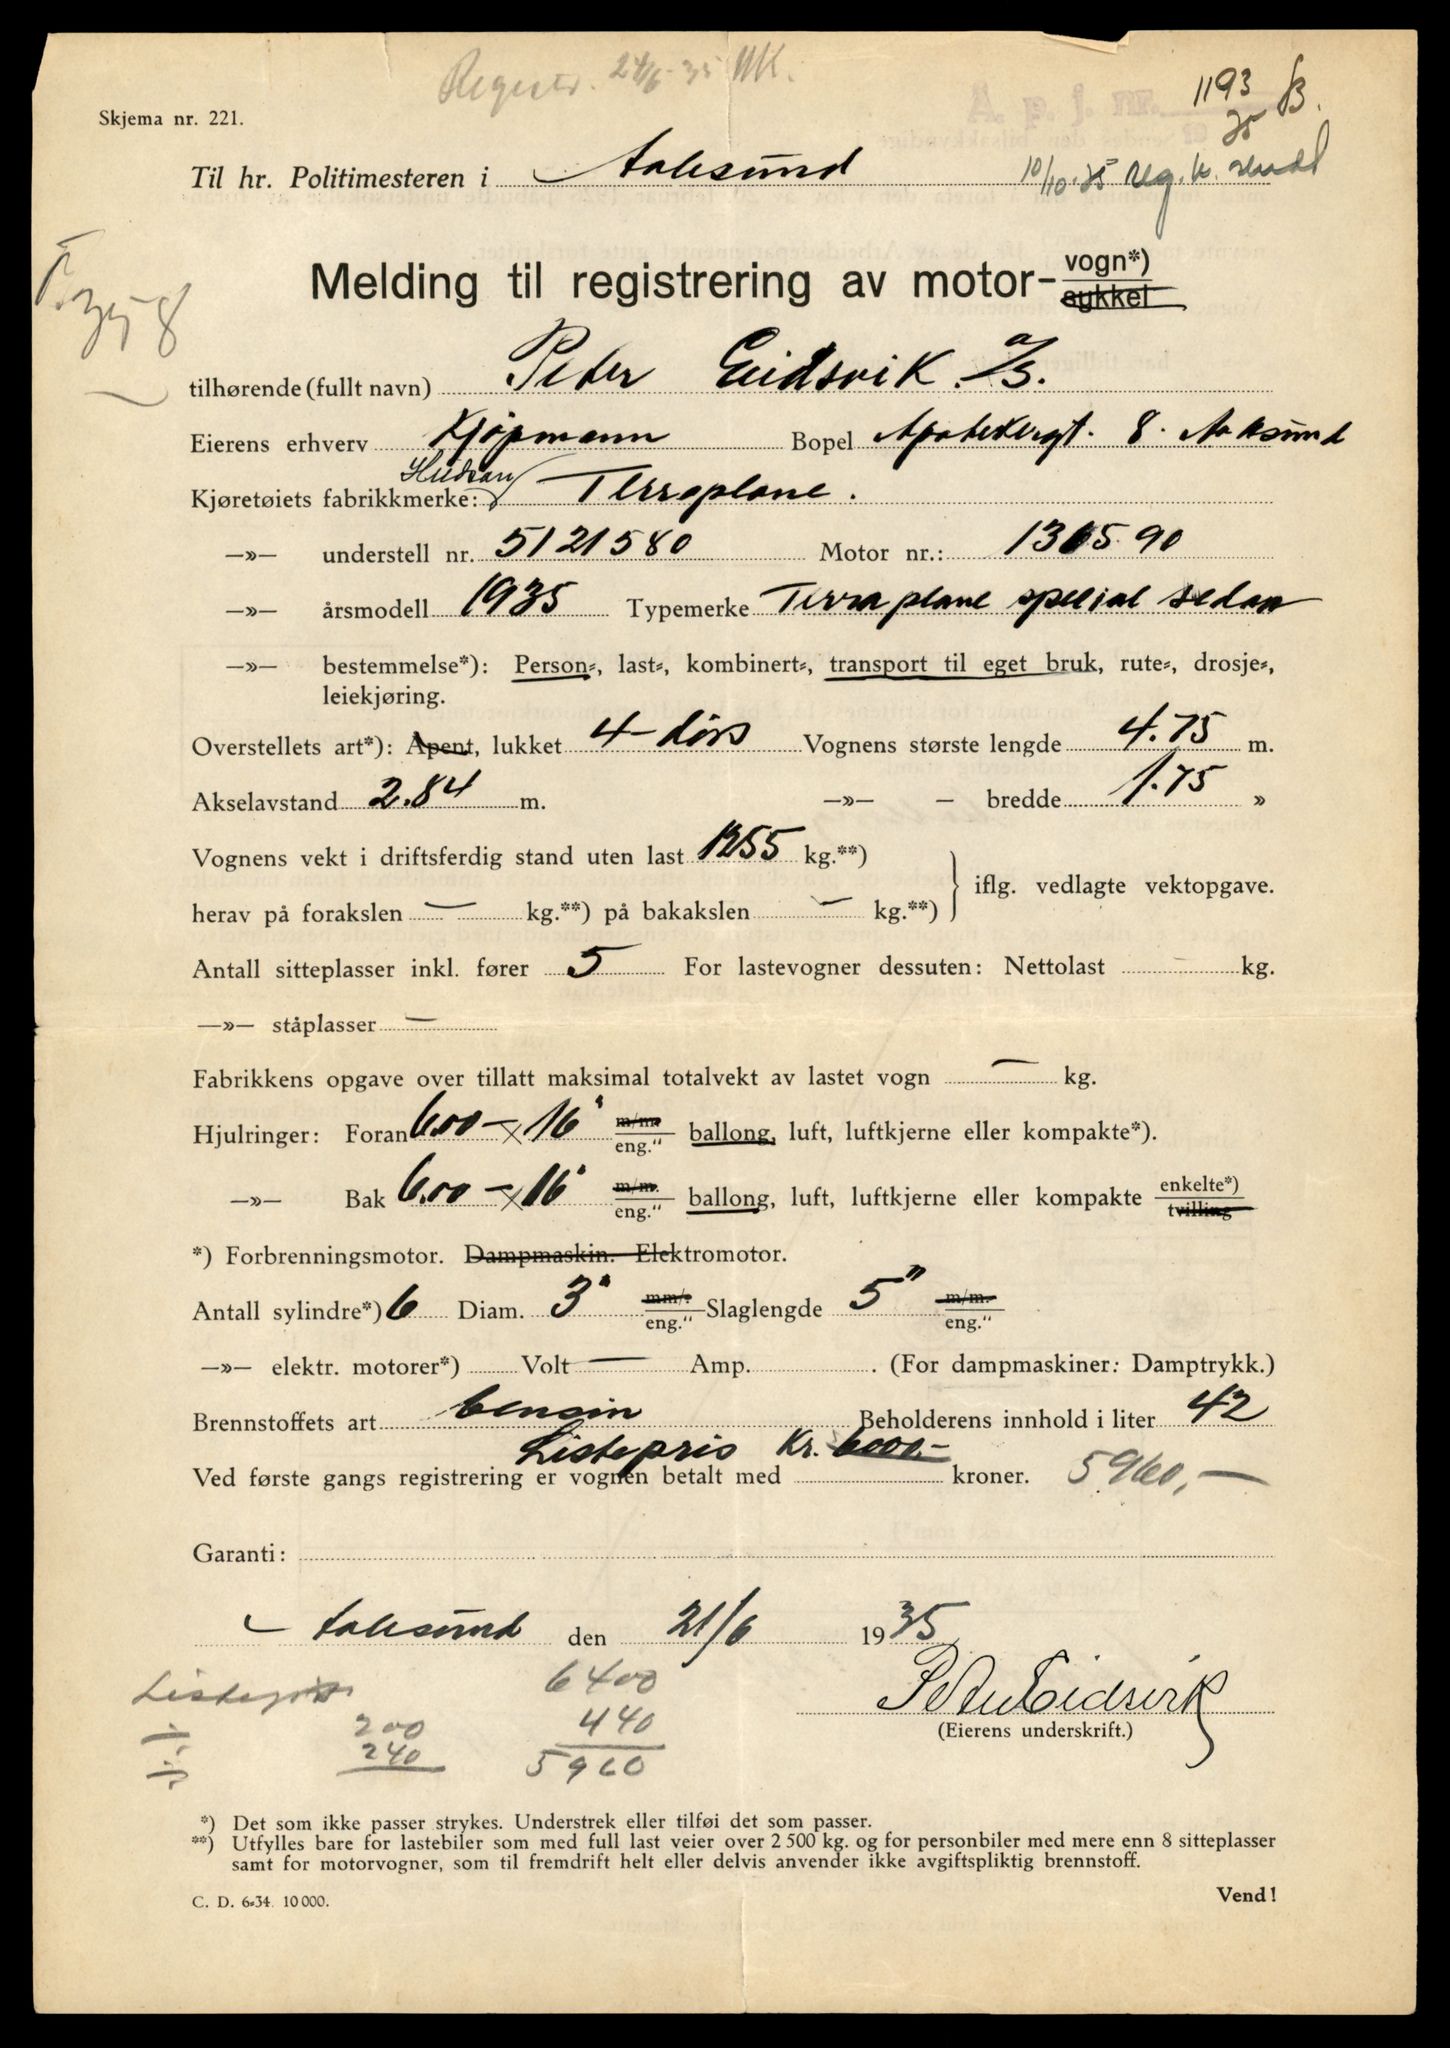 Registr. 24/6-35
A. p. j. nr. 1193
35
Skjema nr. 221.
Til hr. Politimesteren i Aalesund
10/10-35 reg. k. sendt
Melding til registrering av motor- vogn*)
sykkel
tilhørende (fullt navn) Peter Eidsvik A/S.
Eierens erhverv Kjøpmann Bopel Apotekergt. 8. Aalesund
Kjøretøiets fabrikkmerke: Hudson Terraplane.
—»— understell nr. 5121580 Motor nr.: 130590
—»— årsmodell 1935 Typemerke Terraplane special sedan
—»— bestemmelse*): Person-, last-, kombinert-, transport til eget bruk, rute-, drosje-,
leiekjøring.
Overstellets art*): Åpent, lukket 4-dørs Vognens største lengde 4.75 m.
Akselavstand 2.84 m. —»— — bredde 1.75 »
Vognens vekt i driftsferdig stand uten last 1255 kg.**)
iflg. vedlagte vektopgave.
herav på forakslen — kg.**) på bakakslen — kg.**)
Antall sitteplasser inkl. fører 5 For lastevogner dessuten: Nettolast — kg.
—»— ståplasser —
Fabrikkens opgave over tillatt maksimal totalvekt av lastet vogn — kg.
Hjulringer: Foran 6.00 — x 16" m/m. eng." ballong, luft, luftkjerne eller kompakte*).
—»— Bak 6.00 — x 16" m/m. eng." ballong, luft, luftkjerne eller kompakte enkelte*) tvilling
*) Forbrenningsmotor. Dampmaskin. Elektromotor.
Antall sylindre*) 6 Diam. 3" mm/. eng." Slaglengde 5" m/m. eng."
—»— elektr. motorer*) Volt — Amp. . (For dampmaskiner: Damptrykk.)
Brennstoffets art bensin Beholderens innhold i liter 42
Listepris Kr. 6000.-
Ved første gangs registrering er vognen betalt med kroner. 5960,—
Garanti:
Aalesund den 21/6 1935
Peter Eidsvik
(Eierens underskrift.)
Listepris 6400
÷ 200 440
÷ 240 5960
*) Det som ikke passer strykes. Understrek eller tilføi det som passer.
**) Utfylles bare for lastebiler som med full last veier over 2 500 kg. og for personbiler med mere enn 8 sitteplasser
samt for motorvogner, som til fremdrift helt eller delvis anvender ikke avgiftspliktig brennstoff.
C. D. 6-34. 10 000.
Vend!